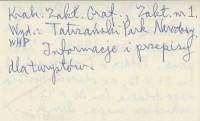 Krak. Zakł. Graf., Zakł. nr 1.
Wyd.: Tatrzański Park Narodowy.
WHP
Informacje i przepisy
dla turystów.